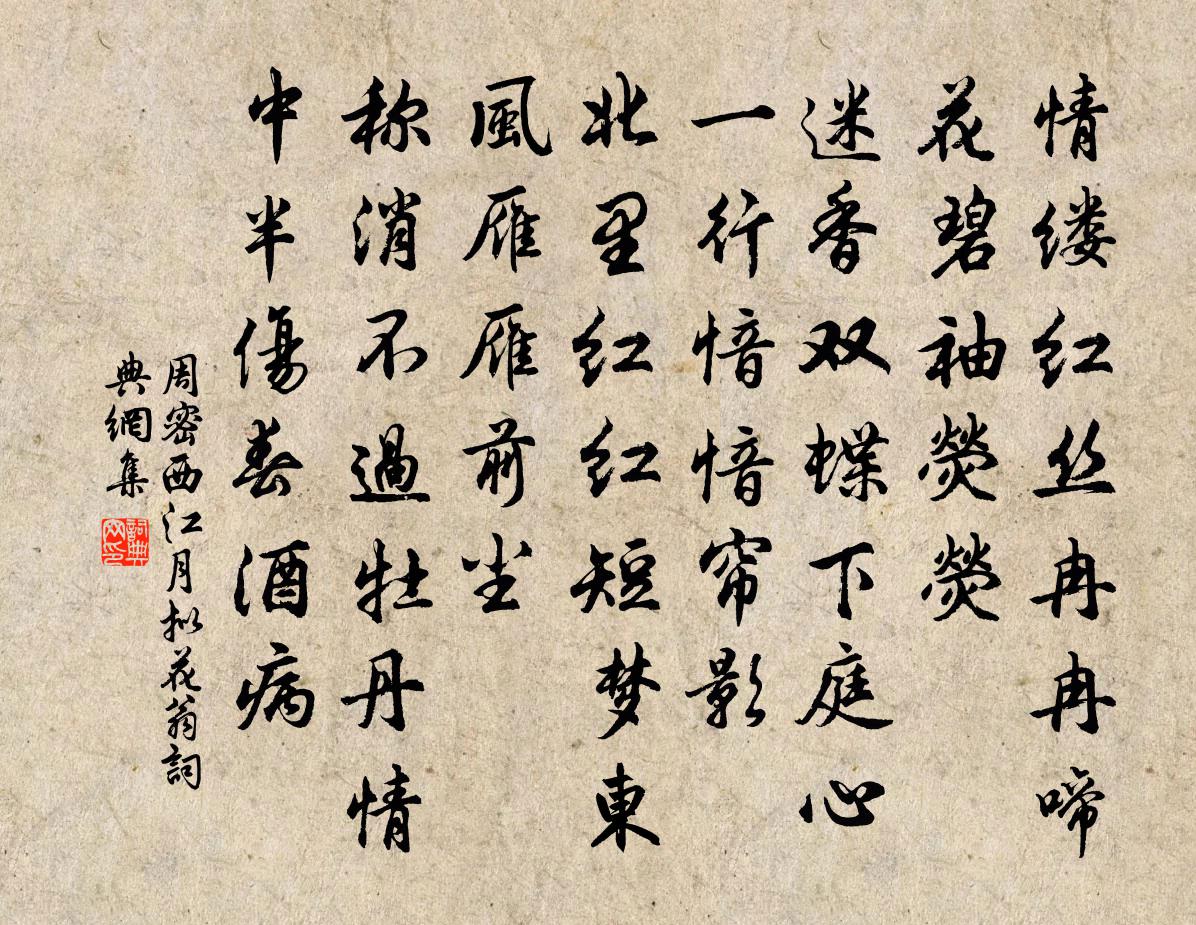 情缕红丝冉冉啼
花碧袖荧荧
迷香双蝶下庭心
一行愔愔帘影
北里红红短梦東
風雁雁前尘
称消不過牡丹情
中半傷春酒病
周密西江月拟花翁詞
典網集
詞典
网印